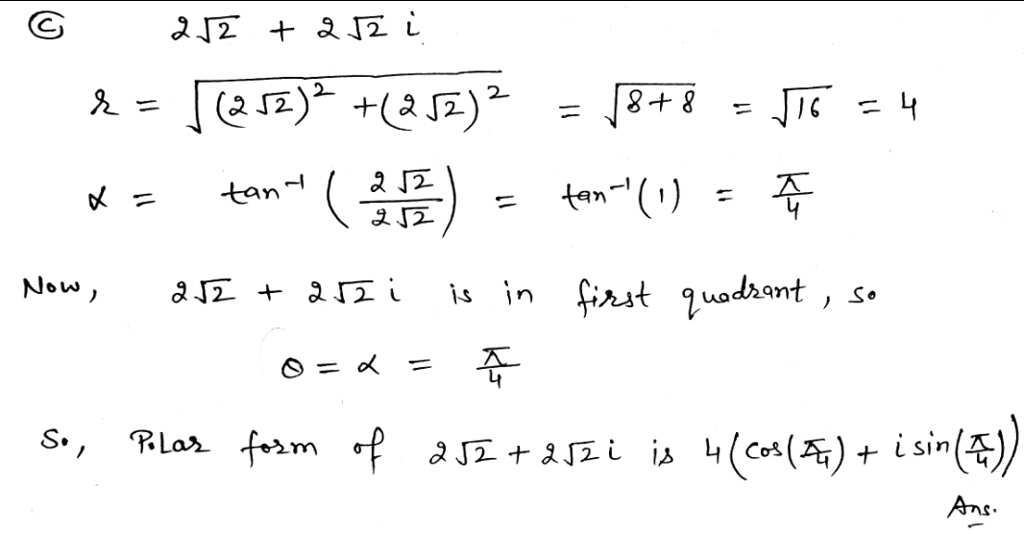 (c) 2√2 + 2√2 i
r = √((2√2)² + (2√2)²) = √(8+8) = √16 = 4
α = tan⁻¹(2√2/2√2) = tan⁻¹(1) = π/4
Now, 2√2 + 2√2 i is in first quadrant, so
θ = α = π/4
So, Polar form of 2√2 + 2√2 i is 4(cos(π/4) + i sin(π/4))
Ans.